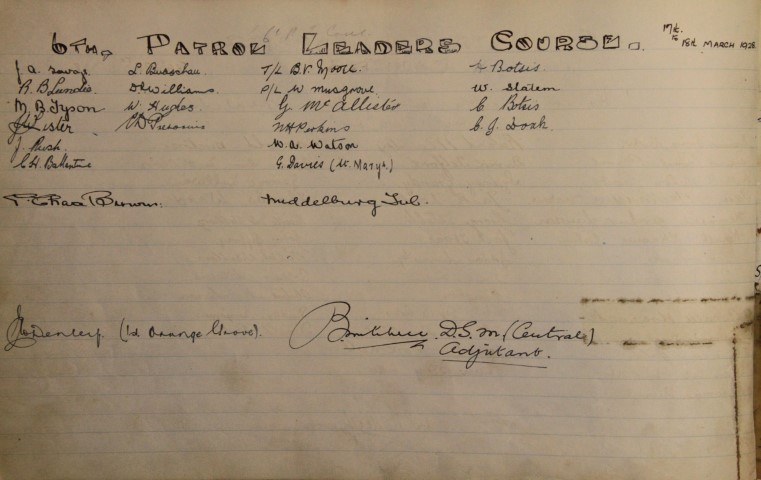 6TH. PATROL LEADERS COURSE. 17th. To 18th MARCH 1928
J. A. Savage L. Busschau. T/L B. V. Moore. Botsis
R. B. Lundie Williams. P/L W Musgrove W. Slatem
M. B. Tyson W. Hughes G McAllister C Botsis
Lister N H Perkins C. J. Donk
J. Rush W. A. Watson
C. H. Ballantine G. Davies (St. Mary's.)
Brown: Middelburg Tvl.
(1st Orange Grove). D.S.M (Central)
Adjutant.